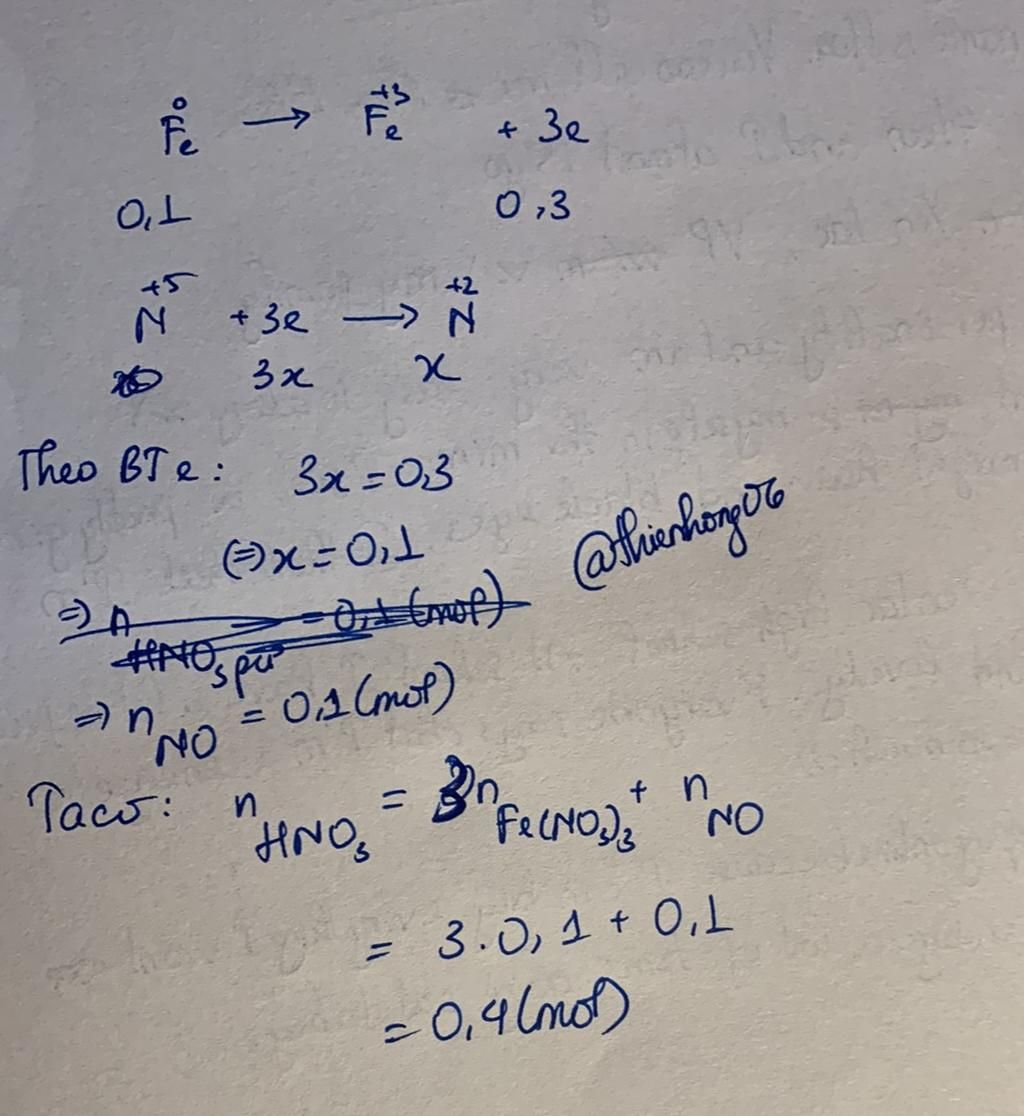 0 +3
Fe → Fe + 3e
0,1 0,3
+5 +2
N + 3e → N
3x x
Theo BT e: 3x = 0,3
(=) x = 0,1
@thienhong06
=) n = 0,1 (mol)
HNO3 pư
=) nNO = 0,1 (mol)
Taco: nHNO3 = 3nFe(NO3)3 + nNO
= 3.0,1 + 0,1
= 0,4 (mol)